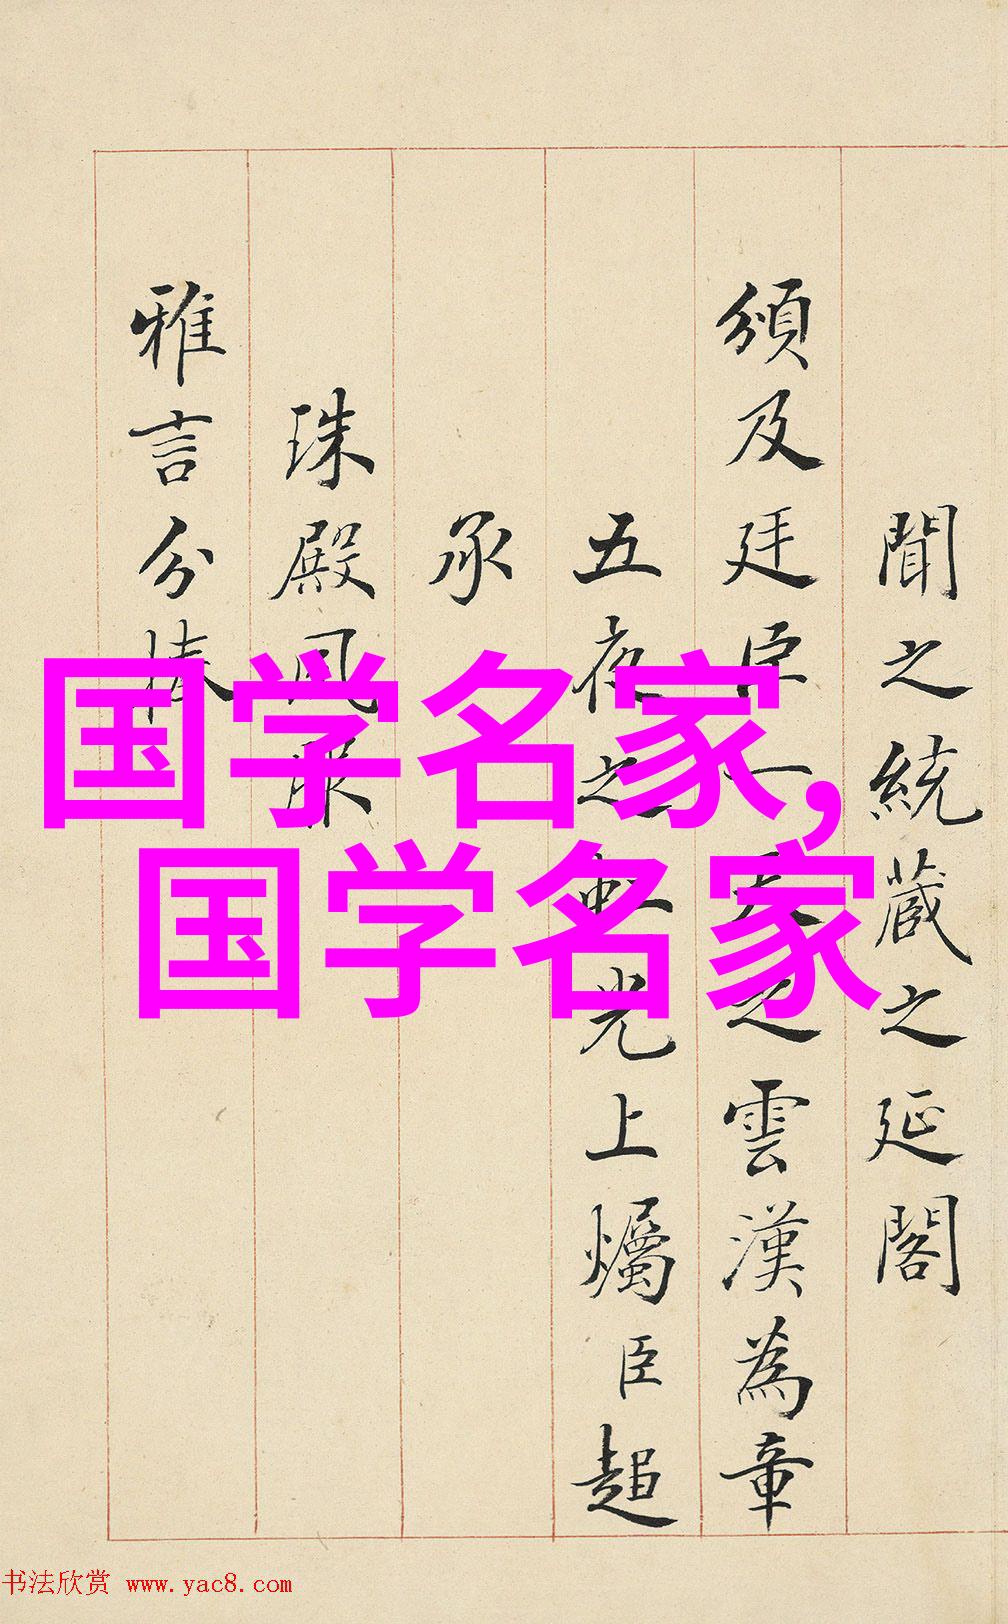 聞之統蔵之延閣
頒及廷臣一天之雲漢為章
五夜之虹光上爥臣趄
承
珠殿風
雅言分捧
国学名家,
国学名家
书法欣赏 www.yac8.com